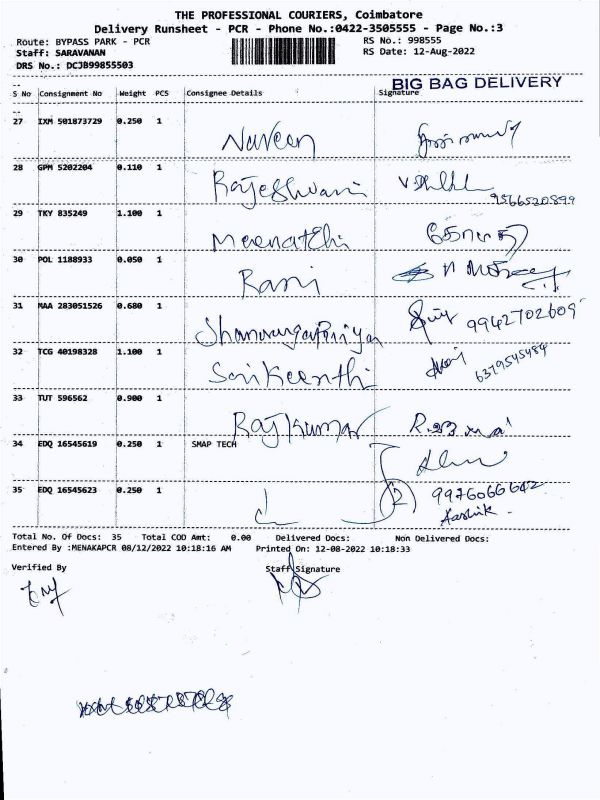 THE PROFESSIONAL COURIERS, Coimbatore
Delivery Runsheet - PCR - Phone No.:0422-3505555 - Page No.:3
Route: BYPASS PARK - PCR RS No.: 998555
Staff: SARAVANAN RS Date: 12-Aug-2022
DRS No.: DCJB99855503
BIG BAG DELIVERY
S No Consignment No Weight PCS Consignee Details Signature
27 IXM 501873729 0.250 1 Naveen
28 GPM 5202204 0.110 1 Rajeshwari 9566520899
29 TKY 835249 1.100 1 Meenatchi
30 POL 1188933 0.050 1 Rani
31 MAA 283051526 0.680 1 9942702609
32 TCG 40198328 1.100 1 Sarikeerthi 6379545484
33 TUT 596562 0.900 1 Rajkumar
34 EDQ 16545619 0.250 1 SMAP TECH
35 EDQ 16545623 0.250 1 2 9976066642
Aashik.
Total No. Of Docs: 35 Total COD Amt: 0.00 Delivered Docs: Non Delivered Docs:
Entered By :MENAKAPCR 08/12/2022 10:18:16 AM Printed On: 12-08-2022 10:18:33
Verified By Staff Signature